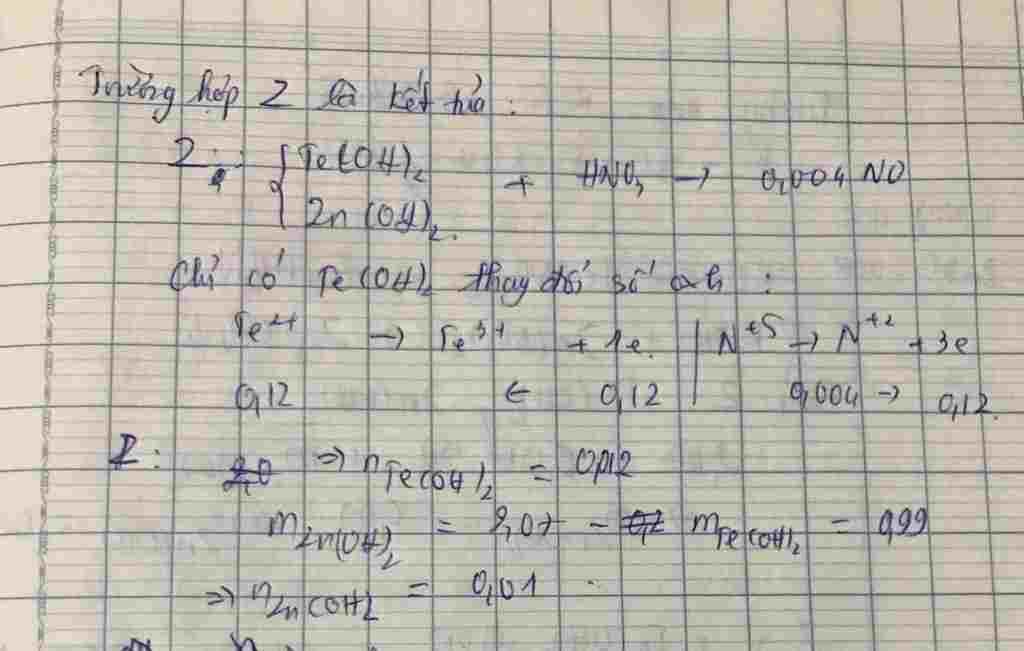 Trường hợp Z là kết tủa:
Z: { Fe(OH)₂ + HNO₃ → 0,004 NO
Zn(OH)₂.
Chỉ có Fe(OH)₂ thay đổi số oxh:
Fe²⁺ → Fe³⁺ + 1e. | N⁺⁵ → N⁺² + 3e
0,12 ← 0,12 | 0,004 → 0,12.
Z: ⇒ nFe(OH)₂ = 0,012
mZn(OH)₂ = 2,07 - mFe(OH)₂ = 0,99
⇒ nZn(OH)2 = 0,01